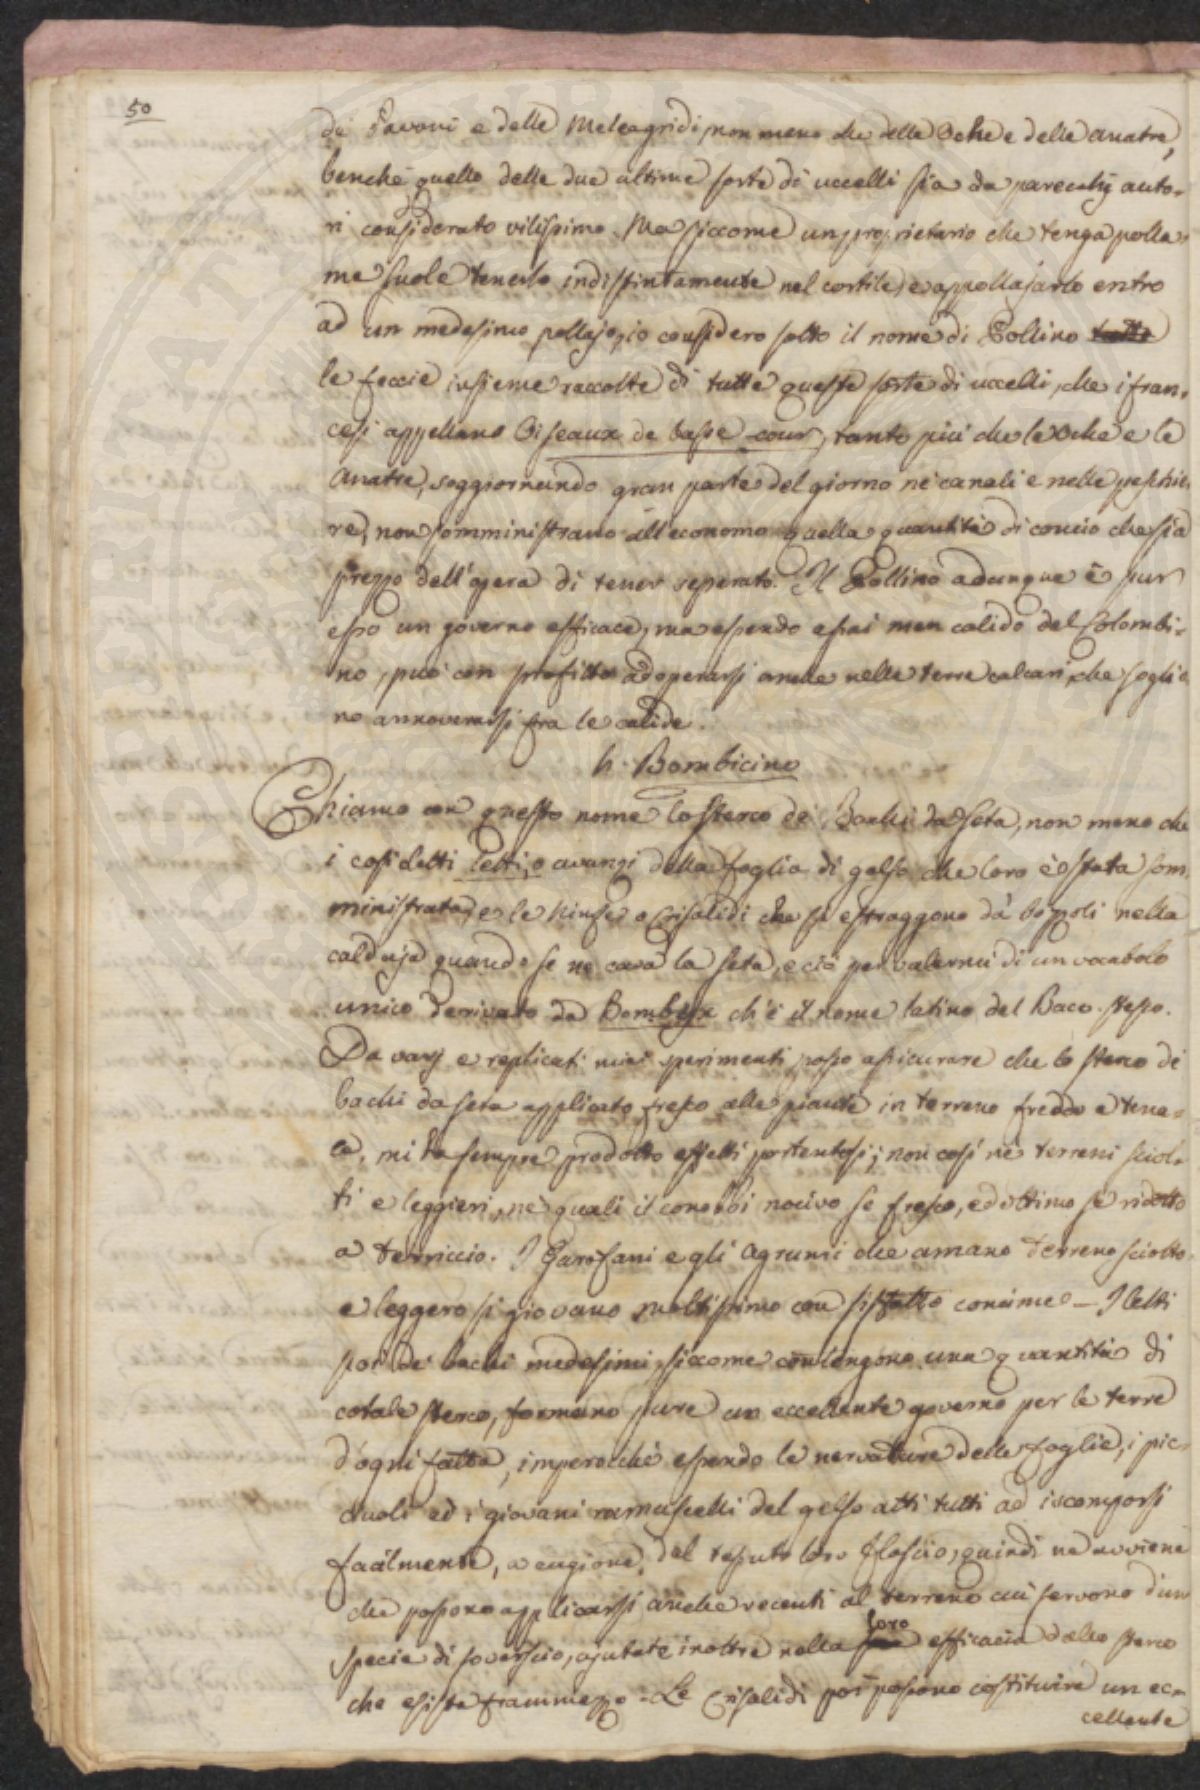 50
de' Pavoni e delle Meleagridi, non meno che delle Oche e delle anatre,
benché quello delle due ultime sorte di uccelli sia da parecchj auto-
ri considerato vilissimo. Ma siccome un proprietario che tenga polla-
me suole tenerlo indistintamente nel cortile, e appollajarlo entro
ad un medesimo pollajo, io considero sotto il nome di Pollino tutte
le feccie insieme raccolte di tutte queste sorte di uccelli, che i fran-
cesi appellano Oiseaux de basse-cour, tanto più che le Oche e le
Anatre, soggiornando gran parte del giorno ne' canali e nelle peschie-
re, non somministrano all'economo quella quantità di concio che sia
prezzo dell'opera di tener seperato. Il Pollino adunque è pur
esso un governo efficace, ma essendo assai men calido del Colombi-
no, può con profitto adoperarsi anche nelle terre calcari, che soglio
no annoverarsi fra le calide.
h. Bombicino
Chiamo con questo nome lo sterco de' Bachi da Seta, non meno che
i così detti letti, o avanzi della foglia di gelso che loro è stata som
ministrata, e le Ninfe o Crisalidi che si estraggono da' bozzoli nella
caldaja quando se ne cava la seta, e ciò per valermi di un vocabolo
unico derrivato da Bombyx ch'è il nome latino del Baco stesso.
Da varj e replicati miei sperimenti posso assicurare che lo sterco di
bachi da seta applicato fresco alle piante in terreno freddo e tena-
ce, mi ha sempre prodotto effetti portentosi; non così ne' terreni sciol-
ti e leggieri, ne' quali il conobbi nocivo se fresco, ed ottimo se ridotto
a terriccio. I Garofani e gli Agrumi che amano terreno sciolto
e leggero si giovano moltissimo con sifatto concime - I letti
poi de' bachi medesimi, siccome contengono una quantità di
cotale sterco, formano pure un eccellente governo per le terre
d'ogni fatta, imperocché essendo le nervature delle foglie, i pic-
ciuoli ed i giovani ramuscelli del gelso atti tutti ad iscomporsi
facilmente, a cagione del tessuto loro floscio, quindi ne avviene
che possono applicarsi anche recenti al terreno cui servono d'un
specie di soverscio, ajutate inoltre nella loro efficacia dallo sterco
che esiste frammezzo - Le Crisalidi poi possono costituire un ec-
cellente